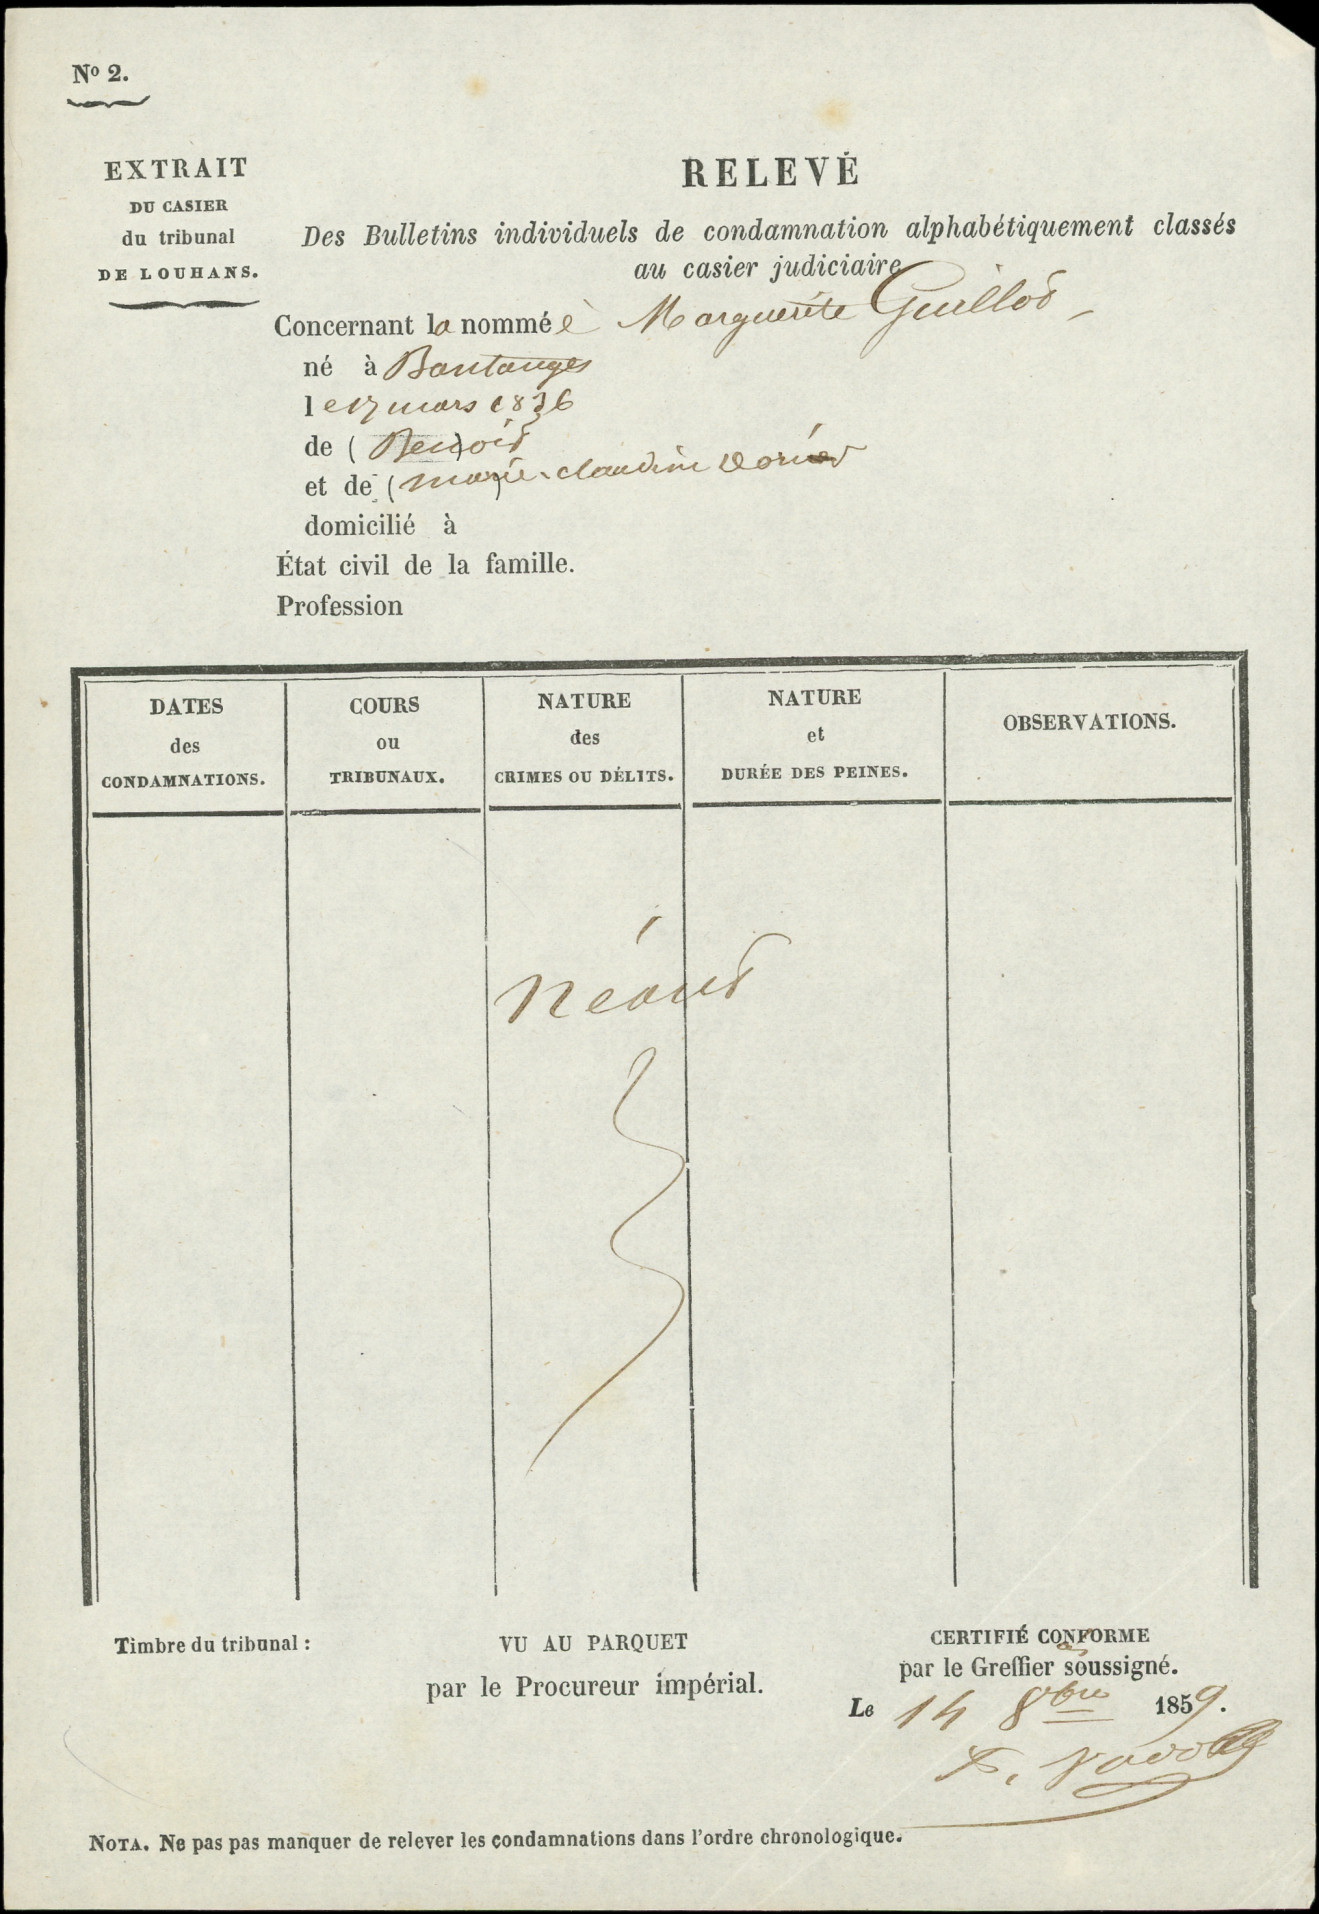 No 2.
EXTRAIT
DU CASIER
du tribunal
DE LOUHANS.
RELEVÉ
Des Bulletins individuels de condamnation alphabétiquement classés
au casier judiciaire
Concernant la nommée Marguerite Guillot
né à Bantanges
le 17 mars 1836
de (Benoit)
et de (marie claudine
domicilié à
État civil de la famille.
Profession
DATES
des
CONDAMNATIONS.
COURS
ou
TRIBUNAUX.
NATURE
des
CRIMES OU DÉLITS.
NATURE
et
DURÉE DES PEINES.
OBSERVATIONS.
néant
Timbre du tribunal :
VU AU PARQUET
par le Procureur impérial.
CERTIFIÉ CONFORME
par le Greffier soussigné.
Le 14 8bre 1859.
NOTA. Ne pas pas manquer de relever les condamnations dans l'ordre chronologique.